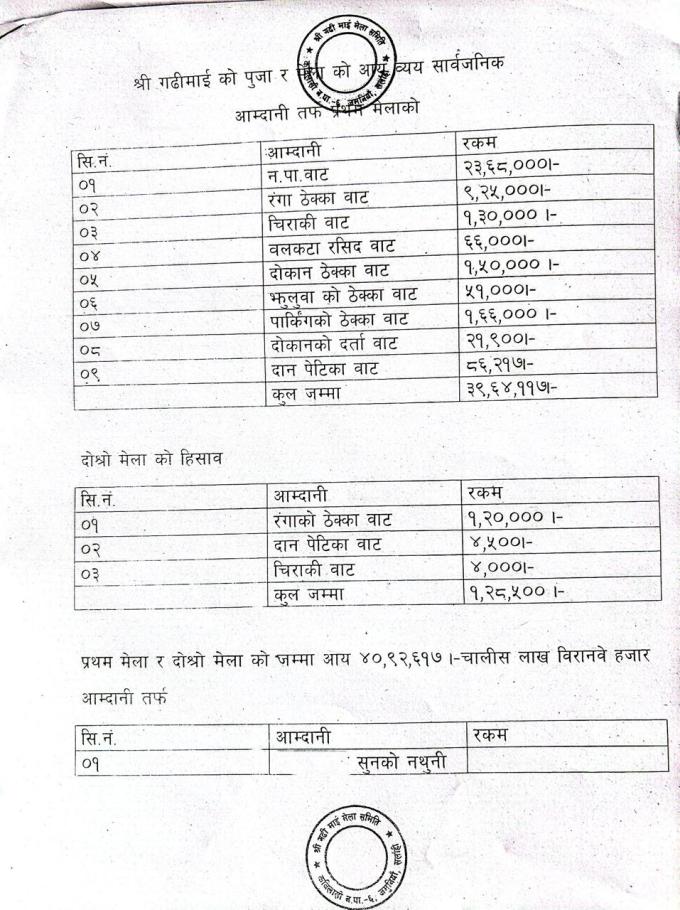 श्री गढीमाई को पुजा र मेला को आय व्यय सार्वजनिक
आम्दानी तर्फ प्रथम मेलाको
सि.नं. आम्दानी रकम
०१ न.पा.वाट २३,६८,०००।-
०२ रंगा ठेक्का वाट ९,२५,०००।-
०३ चिराकी वाट १,३०,००० ।-
०४ वलकटा रसिद वाट ६६,०००।-
०५ दोकान ठेक्का वाट १,५०,००० ।-
०६ झुलुवा को ठेक्का वाट ५१,०००।-
०७ पार्किंगको ठेक्का वाट १,६६,००० ।-
०८ दोकानको दर्ता वाट २१,९००।-
०९ दान पेटिका वाट ८६,२१७।-
कुल जम्मा ३९,६४,११७।-
दोश्रो मेला को हिसाव
सि.नं. आम्दानी रकम
०१ रंगाको ठेक्का वाट १,२०,००० ।-
०२ दान पेटिका वाट ४,५००।-
०३ चिराकी वाट ४,०००।-
कुल जम्मा १,२८,५०० ।-
प्रथम मेला र दोश्रो मेला को जम्मा आय ४०,९२,६१७ ।-चालीस लाख विरानवे हजार
आम्दानी तर्फ
सि.नं. आम्दानी रकम
०१ सुनको नथुनी
श्री गढी माई मेला समिति